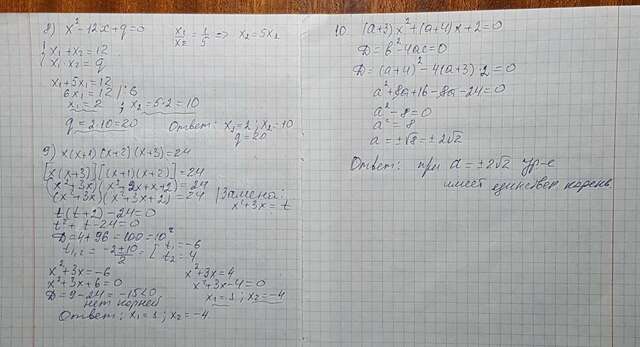 8) x² - 12x + q = 0   x₁/x₂ = 1/5 => x₂ = 5x₁
{ x₁ + x₂ = 12
x₁ · x₂ = q
x₁ + 5x₁ = 12
6x₁ = 12 | : 6
x₁ = 2 ; x₂ = 5·2 = 10
q = 2·10 = 20   Ответ: x₁ = 2; x₂ = 10
q = 20
9) x(x+1)(x+2)(x+3) = 24
[x(x+3)][(x+1)(x+2)] = 24
(x² + 3x)(x² + 2x + x + 2) = 24
(x² + 3x)(x² + 3x + 2) = 24 | Замена:
x² + 3x = t
t(t+2) - 24 = 0
t² + t - 24 = 0
D = 4 + 96 = 100 = 10²
t₁,₂ = -2±10/2 = [ t₁ = -6
t₂ = 4
x² + 3x = -6   x² + 3x = 4
x² + 3x + 6 = 0   x² + 3x - 4 = 0
D = 9 - 24 = -15 < 0   x₁ = 1; x₂ = -4
нет корней
Ответ: x₁ = 1; x₂ = -4
10. (a+3)x² + (a+4)x + 2 = 0
D = b² - 4ac = 0
D = (a+4)² - 4(a+3)·2 = 0
a² + 8a + 16 - 8a - 24 = 0
a² - 8 = 0
a² = 8
a = ±√8 = ±2√2
Ответ: при a = ±2√2 ур-е
имеет единствен корень